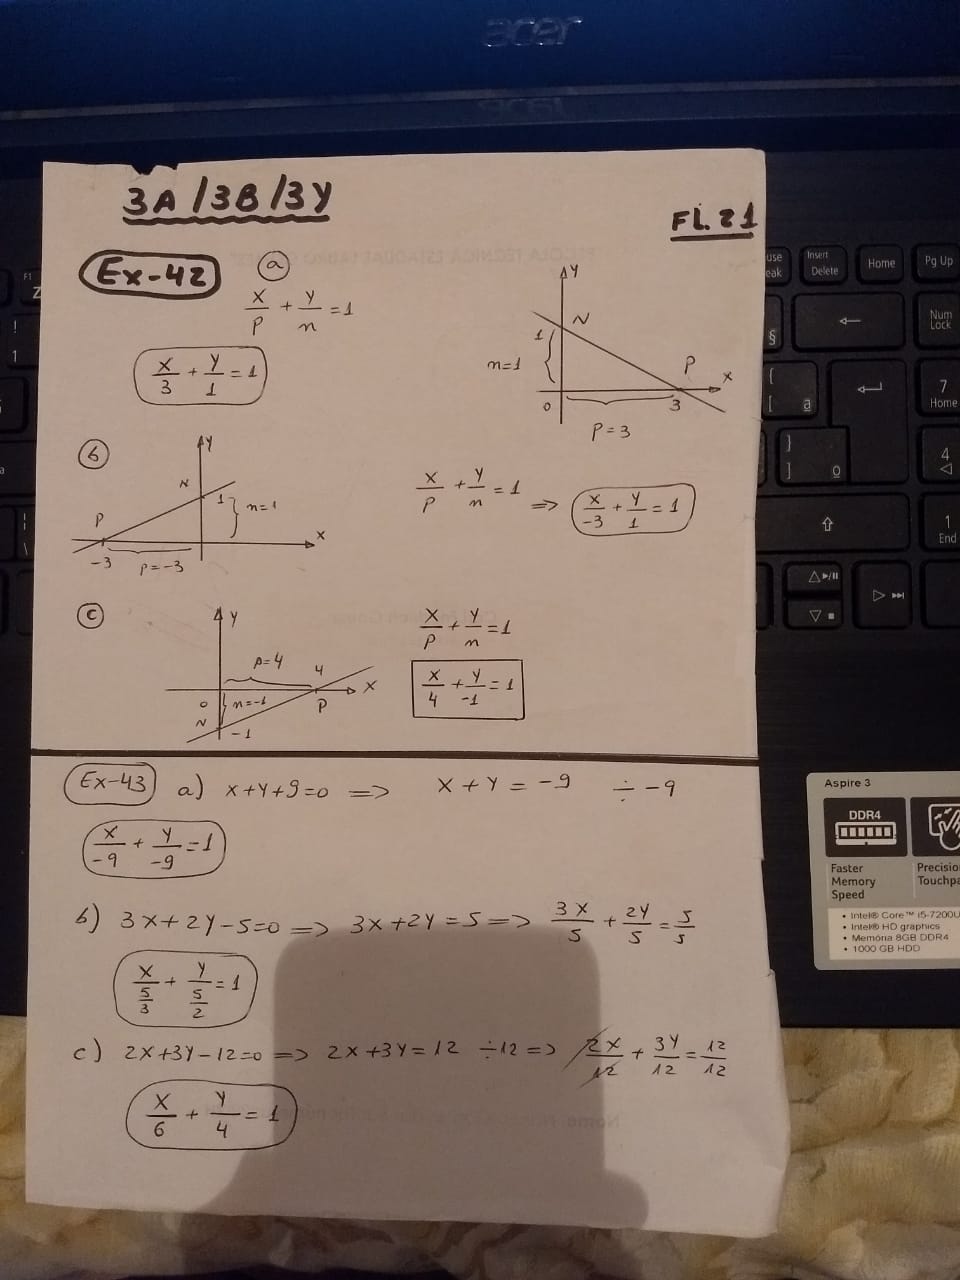 acer
3A/3B/3Y
FL.21
Ex-42
a
x/p + y/n = 1
x/3 + y/1 = 1
Y
N
1
n=1
P
X
0
3
P=3
b
Y
N
1
n=1
P
X
-3
p=-3
x/p + y/n = 1 => x/-3 + y/1 = 1
c
Y
p=4
4
X
0
n=-1
P
N
-1
x/p + y/n = 1
x/4 + y/-1 = 1
Ex-43 a) x+y+9=0 => x+y=-9 ÷-9
x/-9 + y/-9 = 1
b) 3x+2y-5=0 => 3x+2y=5 => 3x/5 + 2y/5 = 5/5
x/(5/3) + y/(5/2) = 1
c) 2x+3y-12=0 => 2x+3y=12 ÷12 => 2x/12 + 3y/12 = 12/12
x/6 + y/4 = 1
Insert
Delete
Home
Pg Up
Num
Lock
7
Home
4
1
End
F1
Z
!
1
§
{
[
ª
}
]
º
Aspire 3
DDR4
Faster
Memory
Speed
Precision
• Intel® Core™ i5-7200U
• Intel® HD graphics
• Memória 8GB DDR4
• 1000 GB HDD